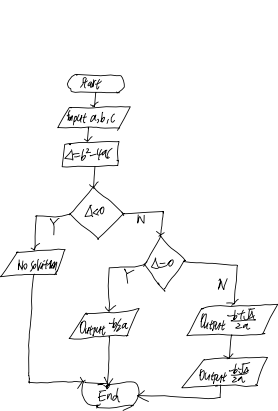 Start
Input a, b, c
Δ=b²-4ac
Δ<0
Y
N
No solution
Δ=0
Y
N
Output -b/2a
Output -b+√Δ/2a
Output -b-√Δ/2a
End